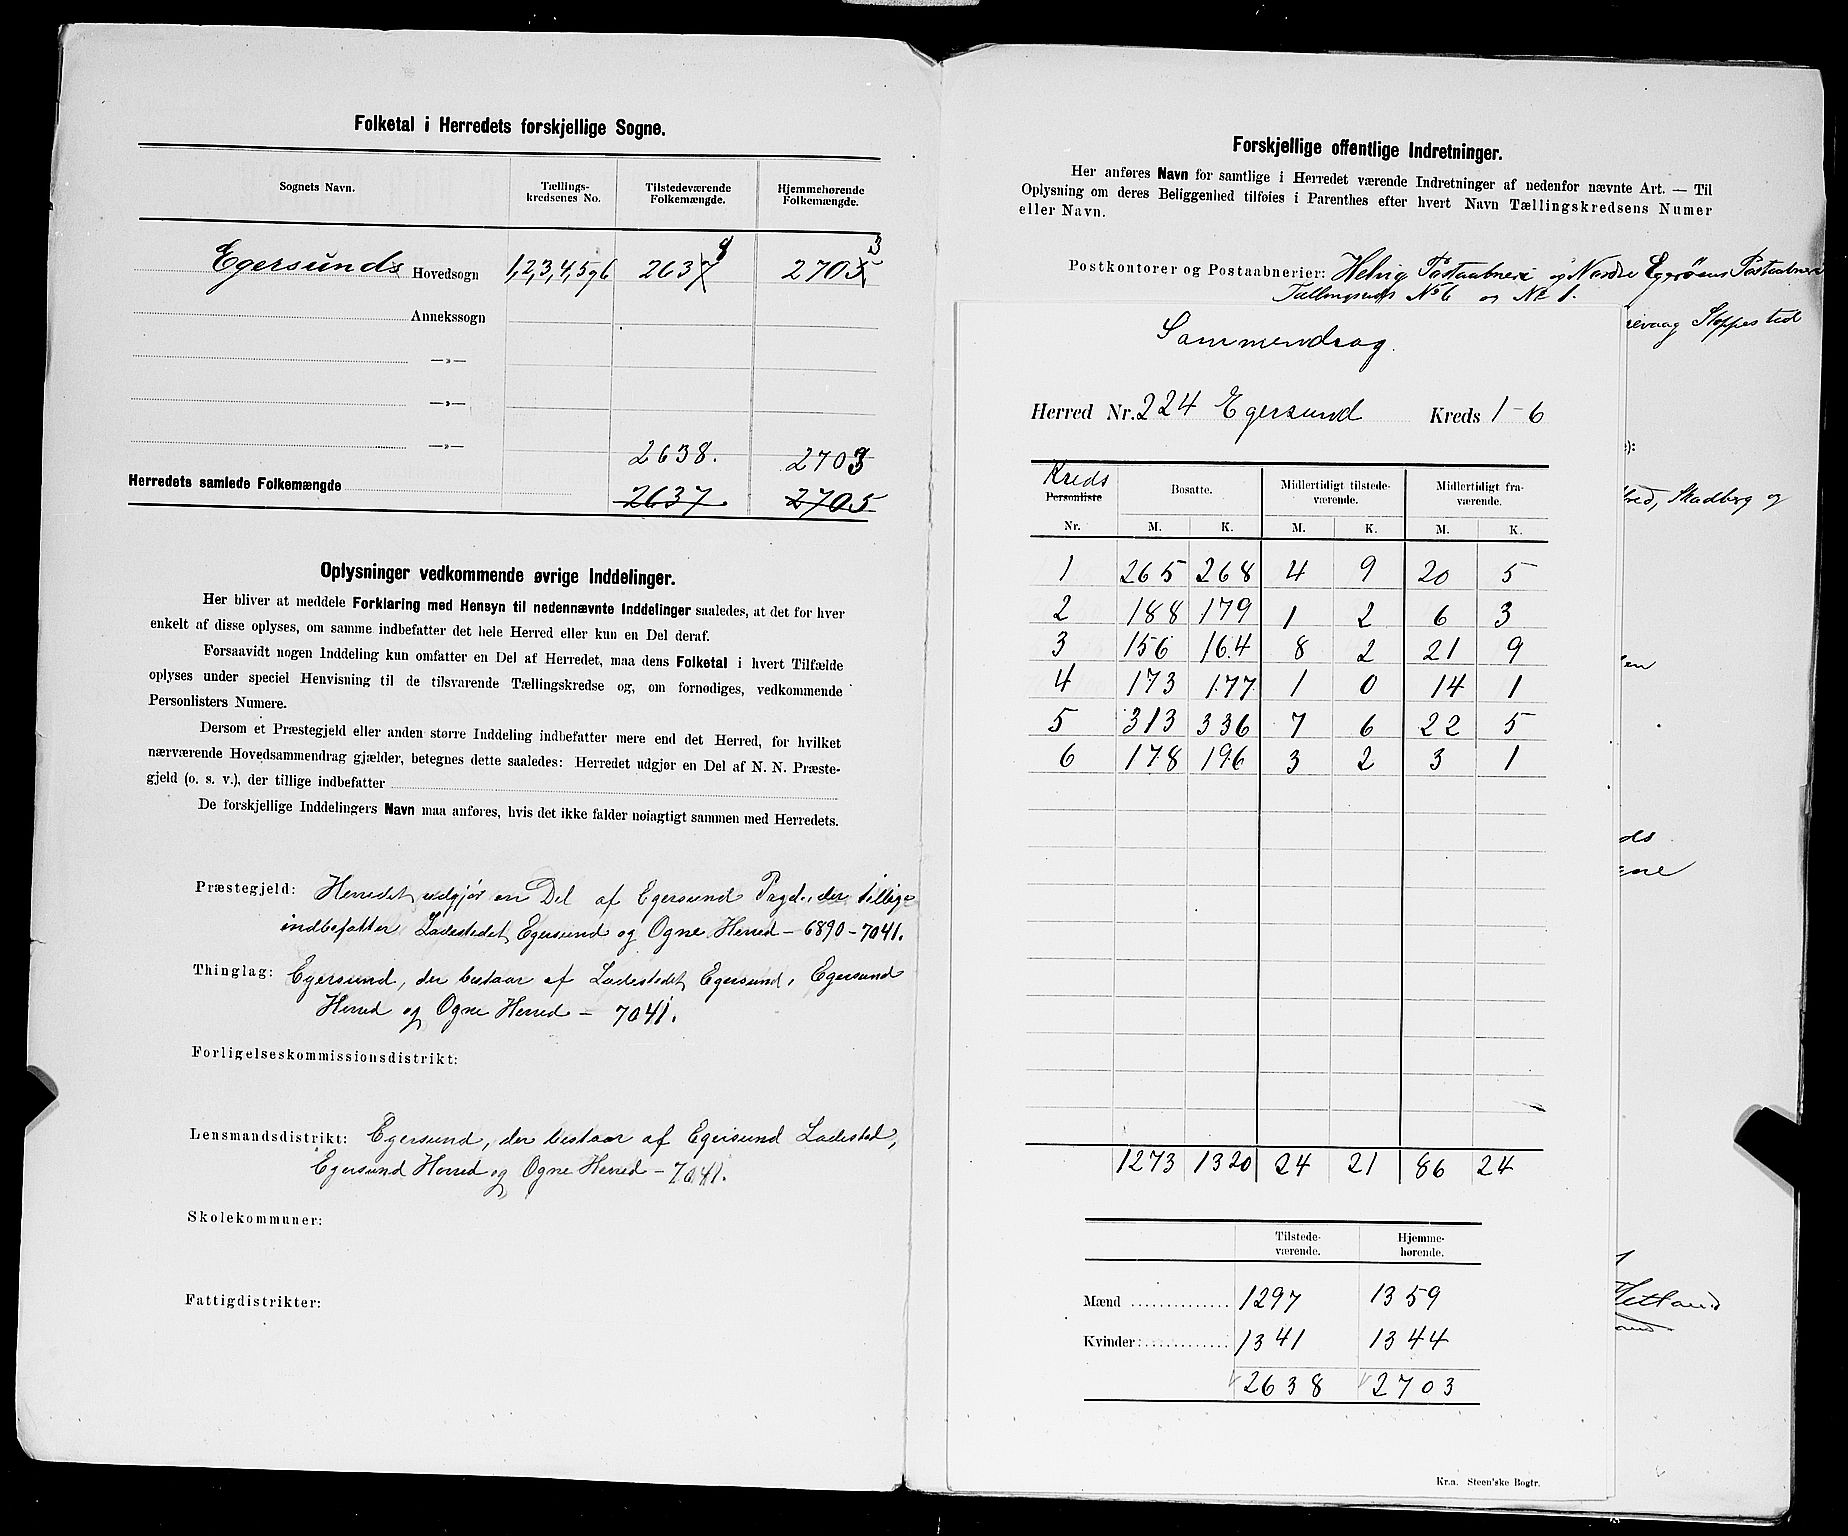 Folketal i Herredets forskjellige Sogne.
Sognets Navn. Tællings-kredsenes No. Tilstedeværende Folkemængde. Hjemmehørende Folkemængde.
Egersunds Hovedsogn 1,2,3,4,5 og 6 2637 8 2705 3
Annekssogn
—»—
—»—
—»— 2638. 2703
Herredets samlede Folkemængde 2637. 2705
Oplysninger vedkommende øvrige Inddelinger.
Her bliver at meddele Forklaring med Hensyn til nedennævnte Inddelinger saaledes, at det for hver
enkelt af disse oplyses, om samme indbefatter det hele Herred eller kun en Del deraf.
Forsaavidt nogen Inddeling kun omfatter en Del af Herredet, maa dens Folketal i hvert Tilfælde
oplyses under speciel Henvisning til de tilsvarende Tællingskredse og, om fornødiges, vedkommende
Personlisters Numere.
Dersom et Præstegjeld eller anden større Inddeling indbefatter mere end det Herred, for hvilket
nærværende Hovedsammendrag gjælder, betegnes dette saaledes: Herredet udgjør en Del af N. N. Præste-
gjeld (o. s. v.), der tillige indbefatter
De forskjellige Inddelingers Navn maa anføres, hvis det ikke falder nøiagtigt sammen med Herredets.
Præstegjeld: Herredet udgjør en Del af Egersund Prgd., der tillige
indbefatter Ladestedet Egersund og Ogne Herred – 6890 – 7041.
Thinglag: Egersund, der bestaar af Ladestedet Egersund, Egersund
Herred og Ogne Herred – 7041.
Forligelseskommissionsdistrikt:
Lensmandsdistrikt: Egersund, der bestaar af Egersund Ladested,
Egersund Herred og Ogne Herred – 7041.
Skolekommuner:
Fattigdistrikter:
Forskjellige offentlige Indretninger.
Her anføres Navn for samtlige i Herredet værende Indretninger af nedenfor nævnte Art. — Til
Oplysning om deres Beliggenhed tilføies i Parenthes efter hvert Navn Tællingskredsens Numer
eller Navn.
Postkontorer og Postaabnerier: Helvig Postaabneri og Nordre Egerøens Postaabneri
No 6 og No 1.
revaag Stoppested
Sammendrag.
Herred Nr. 224 Egersund Kreds 1–6
):
red, Skadberg og
Kreds
Personliste Nr. Bosatte. Midlertidigt tilstede-værende. Midlertidigt fra-værende.
M. K. M. K. M. K.
1 265 268 4 9 20 5
2 188 179 1 2 6 3
3 156 164 8 2 21 9
4 173 177 1 0 14 1
5 313 336 7 6 22 5
6 178 196 3 2 3 1
en
ds
ene
1273 1320 24 21 86 24
Tilstede-værende. Hjemme-hørende.
Mænd 1297 1359
Kvinder: 1341 1344
2638 2703
Hetland
and
Kr.a. Steen'ske Bogtr.